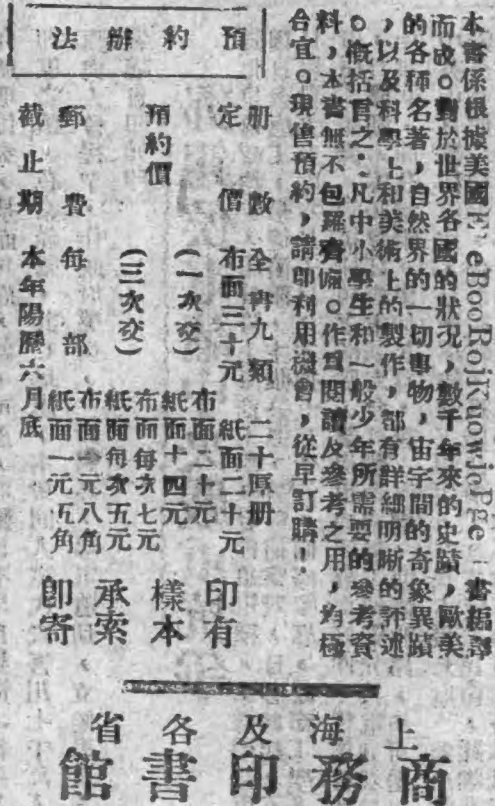 本書係根據美國E'eBooRojKuowicPge一書編譯
而成。對於世界各國的狀況，數千年來的史蹟，歐美
的各種名著，自然界的一切事物，宙宇間的奇象異蹟
，以及科學上和美術上的製作，都有詳細明晰的評述
。概括言之：凡中小學生和一般少年所需要的參考資
料，本書無不包羅齊備。作爲閱讀及參考之用，均極
合宜。現售預約，請即利用機會，從早訂購！
預約辦法
册數 全書九類 二十厚册
定價 布面三十元 紙面二十元
預約價
（一次交） 布面二十元
紙面十四元
（三次交） 布面每次七元
紙面每次五元
郵費 每部 布面一元八角
紙面一元五角
截止期 本年陽曆六月底
印有
樣本
承索
卽寄
上海及各省
商務印書館